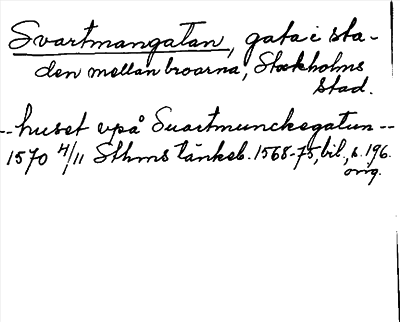 Svartmangatan, gata i sta-
den mellan broarna, Stockholms
Stad.
-- huset vpå Suartmunckegatun --
1570 4/11 Sthms tänkeb. 1568-75, bil., s. 196.
orig.